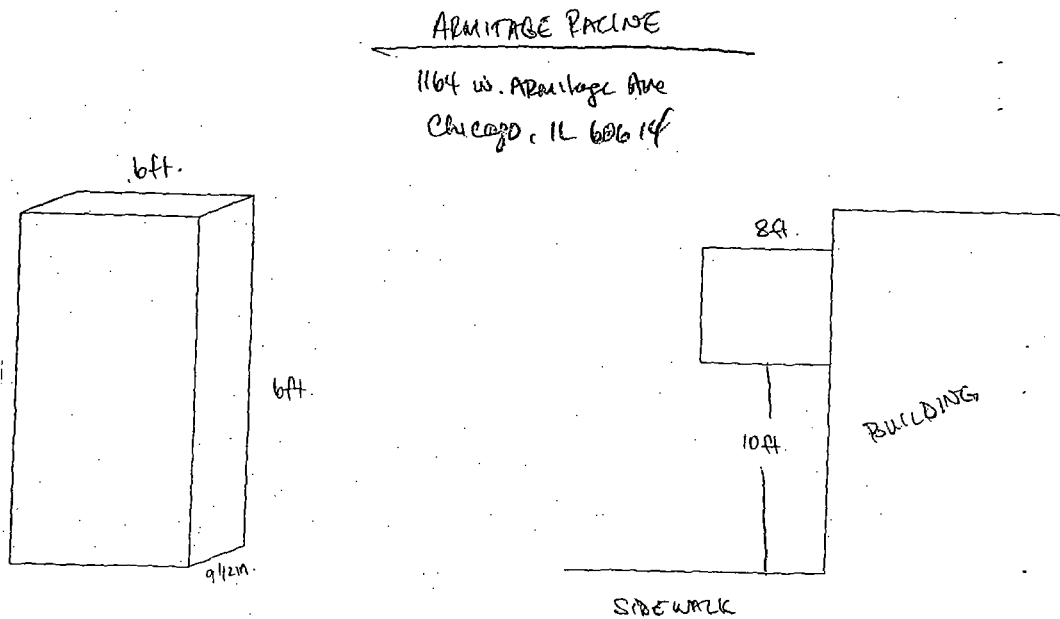 ARMITAGE RACINE
1164 W. ARMitage Ave
Chicago, IL 60614
6ft.
8ft.
6ft.
10ft.
BUILDING
9 1/2in.
SIDEWALK